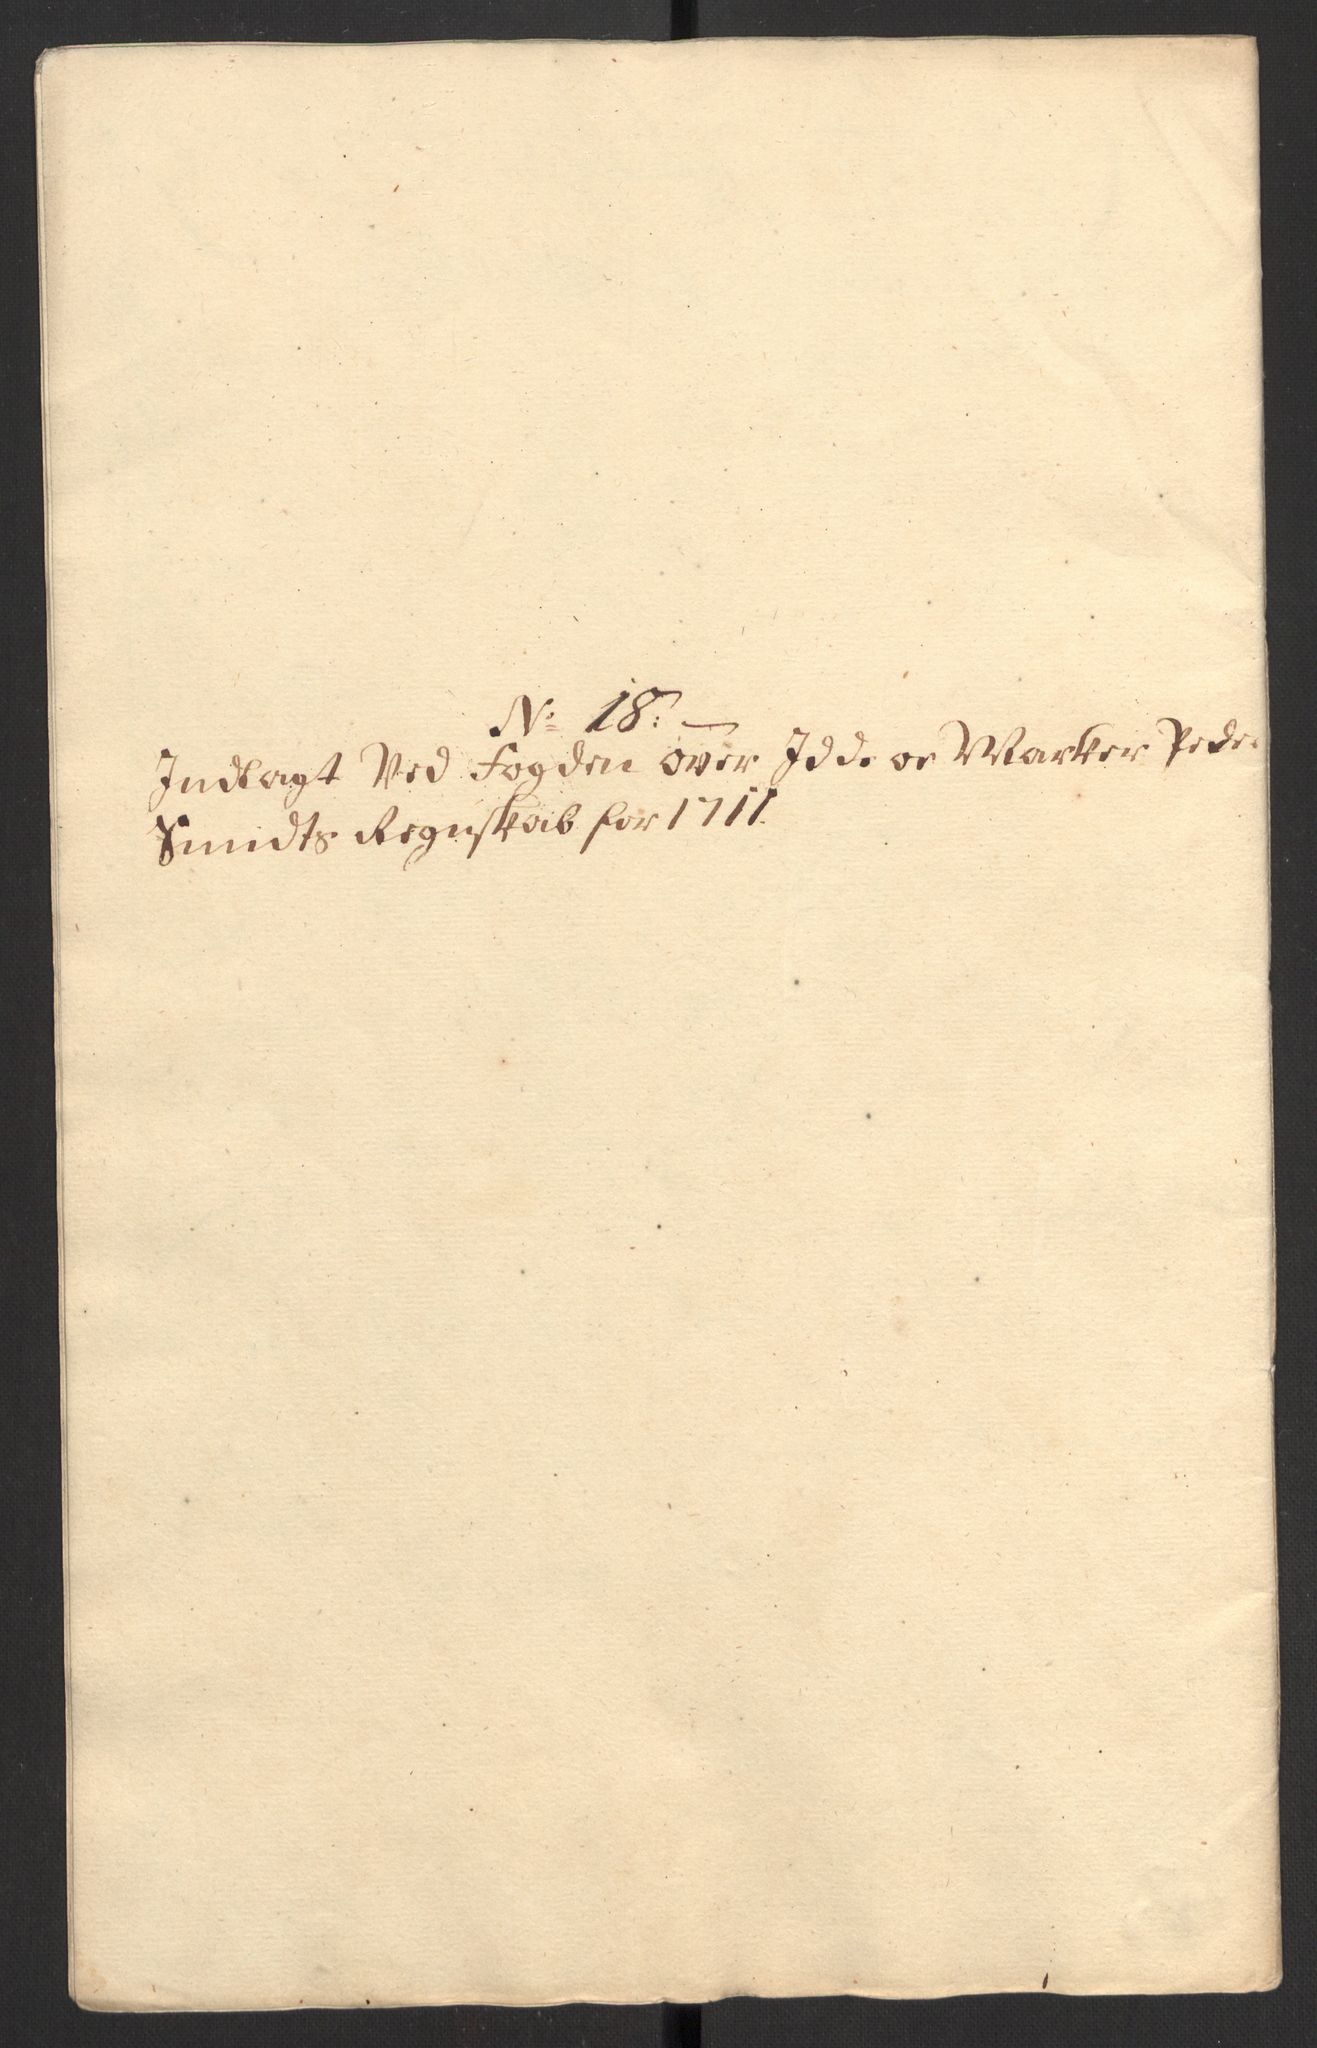 No: 18:
Indlagt Ved Fogden over Idde oc Marker Peder
Smidts Regnskab for 1711